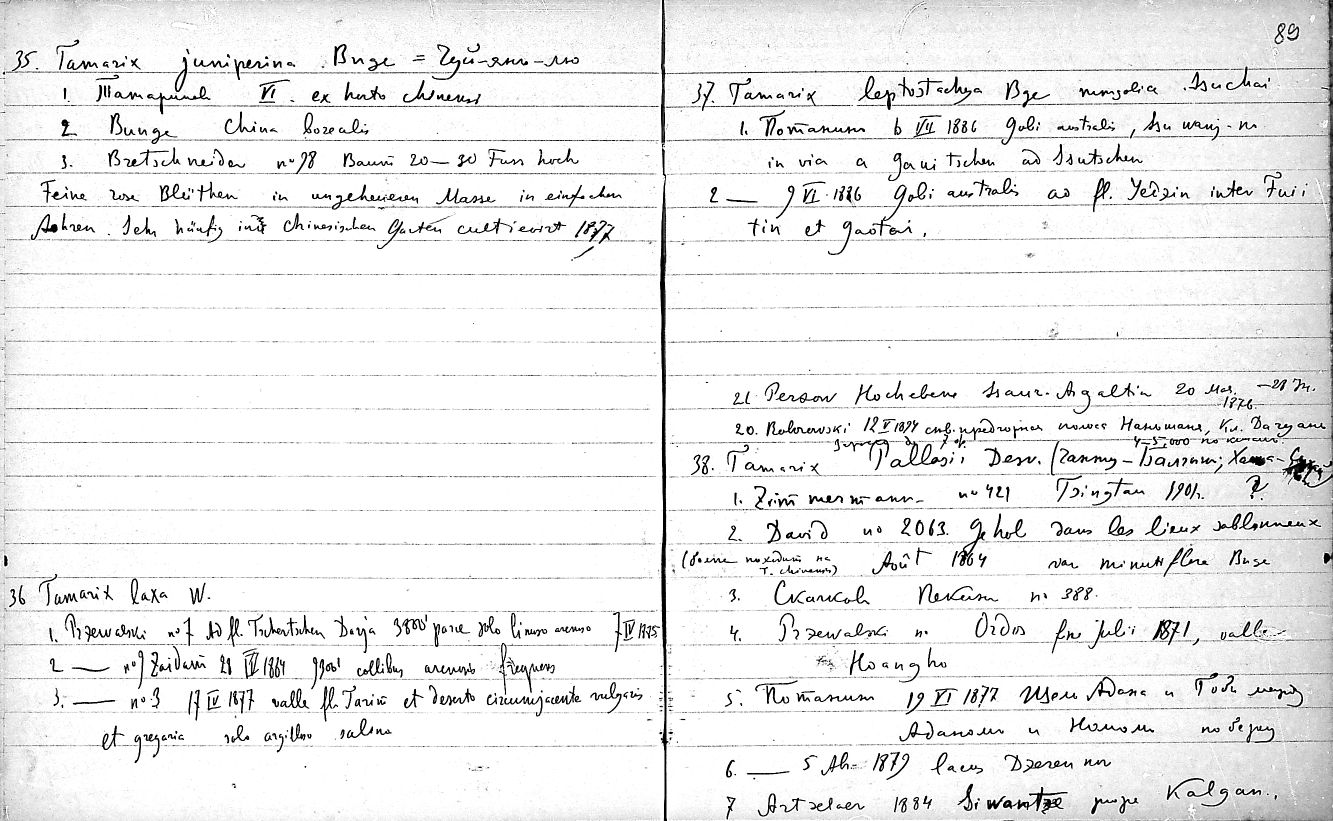 35. Tamarix juniperina Bunge = Чуй-янь-лю
1. Татаринов VI. ex horto chinensi
2 Bunge China borealis
3. Bretschneider no 98 Baum 20—30 Fuss hoch
Feine rosa Blüthen in ungeheueren Masse in einfachen
Aehren. Sehr häufig in chinesischen Garten cultivirt 1877
36 Tamarix laxa W.
1. Przewalski no 7 Ad fl. Tschertschen Darja 3800' solo limoso arenoso 7 IV 1885
2 — no 9 Zaidam 28 1884 9300' collibus arenosis frequens
3. — no 3 17 IV 1877 valle fl. Tarim et deserto circumjacente vulgaris
et gregaria solo argilloso salso
89
37. Tamarix leptostachya Bge mongolica Ssuchai
1. Потанин 6 VII 1886 Gobi australis,
in via a ad
2 — 9 VI 1886 Gobi australis ad fl. inter
tin et Gaotai.
21 Person Hochebene 20 Mai
1876
20. Roborowski 12 V 1894 сев. предгорная полоса Наньшаня, Кл.
4-5,000
38. Tamarix Pallasii Desv.
1. Zimmermann no 421 Tsingtau 1901. ?
2. David no 2063. Gehol dans les lieux sablonneux
(более походит на
T. chinensis) Août 1864 var minutiflora Bunge
3. Скачков Пекин no 388.
4. Przewalski no Ordos fine julii 1871, valle
Hoangho
5. Потанин 19 VI 1877 Адака и Гоби между
Адаком и Номом по берегу
6. — 5 1879 lacus Dzeren nor
7 Artselaer 1884 Siwantze prope Kalgan.